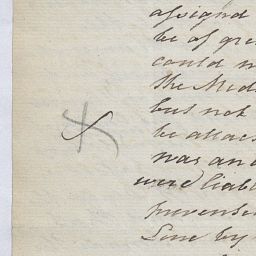 assignd
be of gre
could n
the Med
but not
be attac
was and
were liab
prevente
Line by